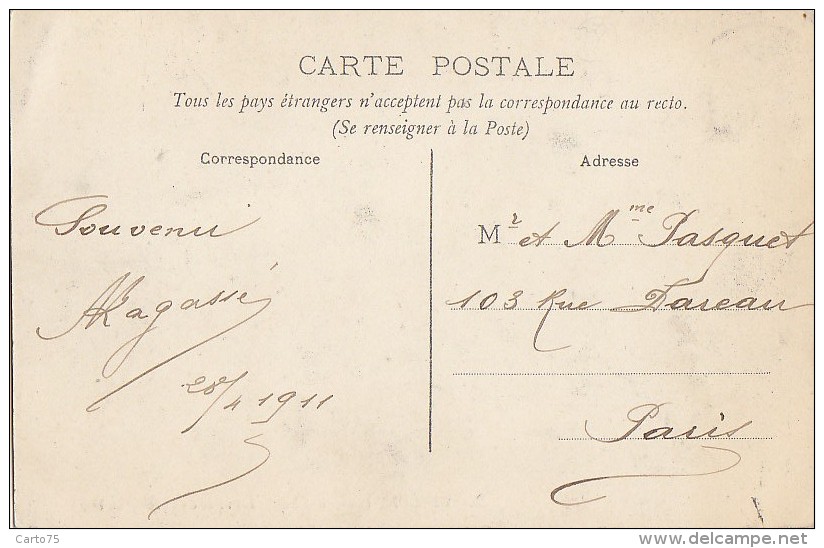 CARTE POSTALE
Tous les pays étrangers n'acceptent pas la correspondance au recto.
(Se renseigner à la Poste)
Correspondance
Souvenir
28/4 1911
Adresse
Mr et Mme Pasquet
103 Rue Dareau
Paris
Carto75
www.delcampe.net